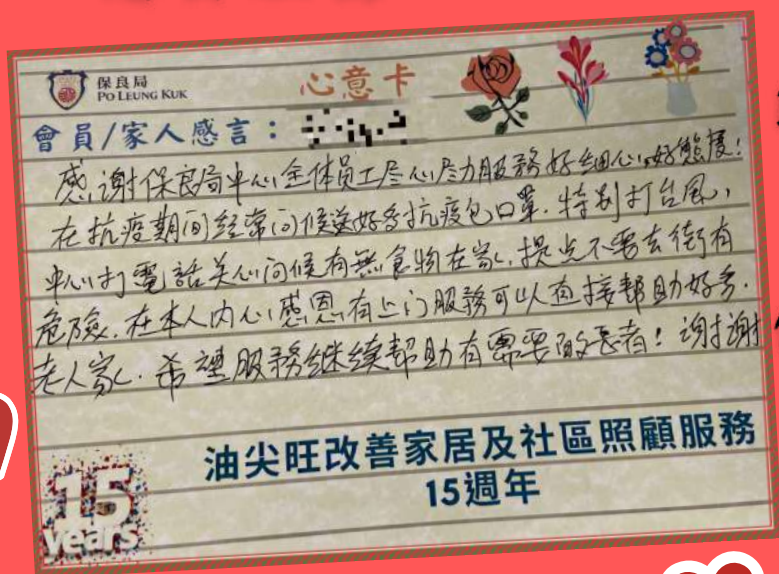 保良局
PO LEUNG KUK
心意卡
會員/家人感言：
感谢保良局中心全体員工尽心尽力服務好细心，好態度！
在抗疫期间经常问候送好多抗疫包口罩．特别打台風，
中心打電話关心问候有無食物在家，提点不要去街有
危險．在本人内心感恩有上门服務可以直接幇助好多．
老人家．希望服務继续幇助有需要的长者！谢谢
油尖旺改善家居及社區照顧服務
15週年
15
years